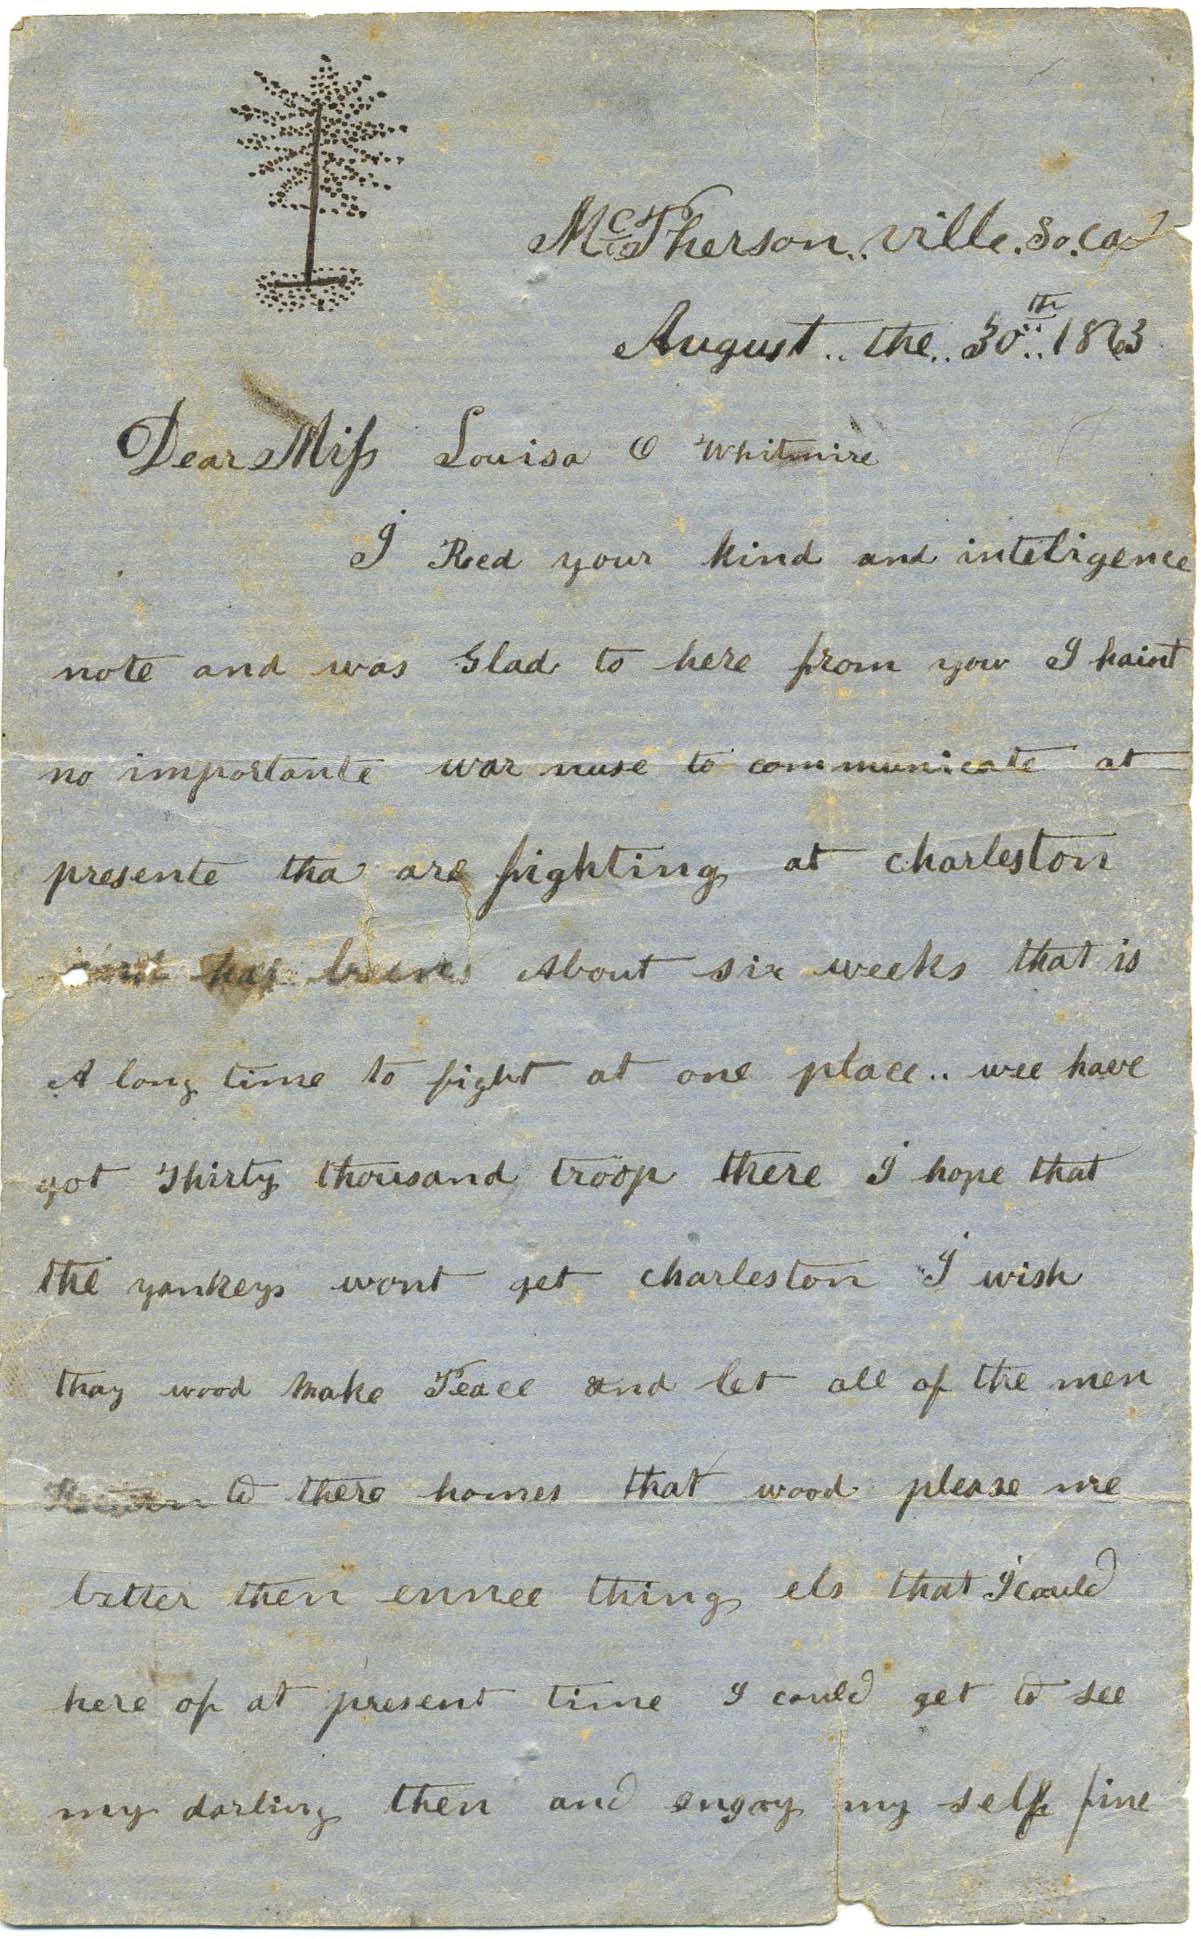 McPherson..ville. So. Ca
August.. the.. 30th.. 1863
Dear Miss Louisa O Whitmire
I Recd your kind and inteligence
note and was Glad to here from you I haint
no importante war nuse to communicate at
presente tha are fighting at charleston
has been About six weeks that is
A long time to fight at one place.. wee have
got Thirty thousand troop there I hope that
the yankeys wont get charleston I wish
thay wood Make Peace and let all of the men
Return to there homes that wood please me
better then ennee thing els that I could
here of at present time I could get to see
my darling then and engoy my self fine